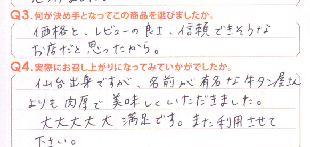 Q3.何が決め手となってこの商品を選びましたか。
価格と、レビューの良さ、信頼できそうな
お店だと思ったから。
Q4.実際にお召し上がりになってみていかがでしたか。
仙台出身ですが、名前が有名な牛タン屋さん
よりも肉厚で美味しくいただきました。
大大大大大満足です。また利用させて
下さい。